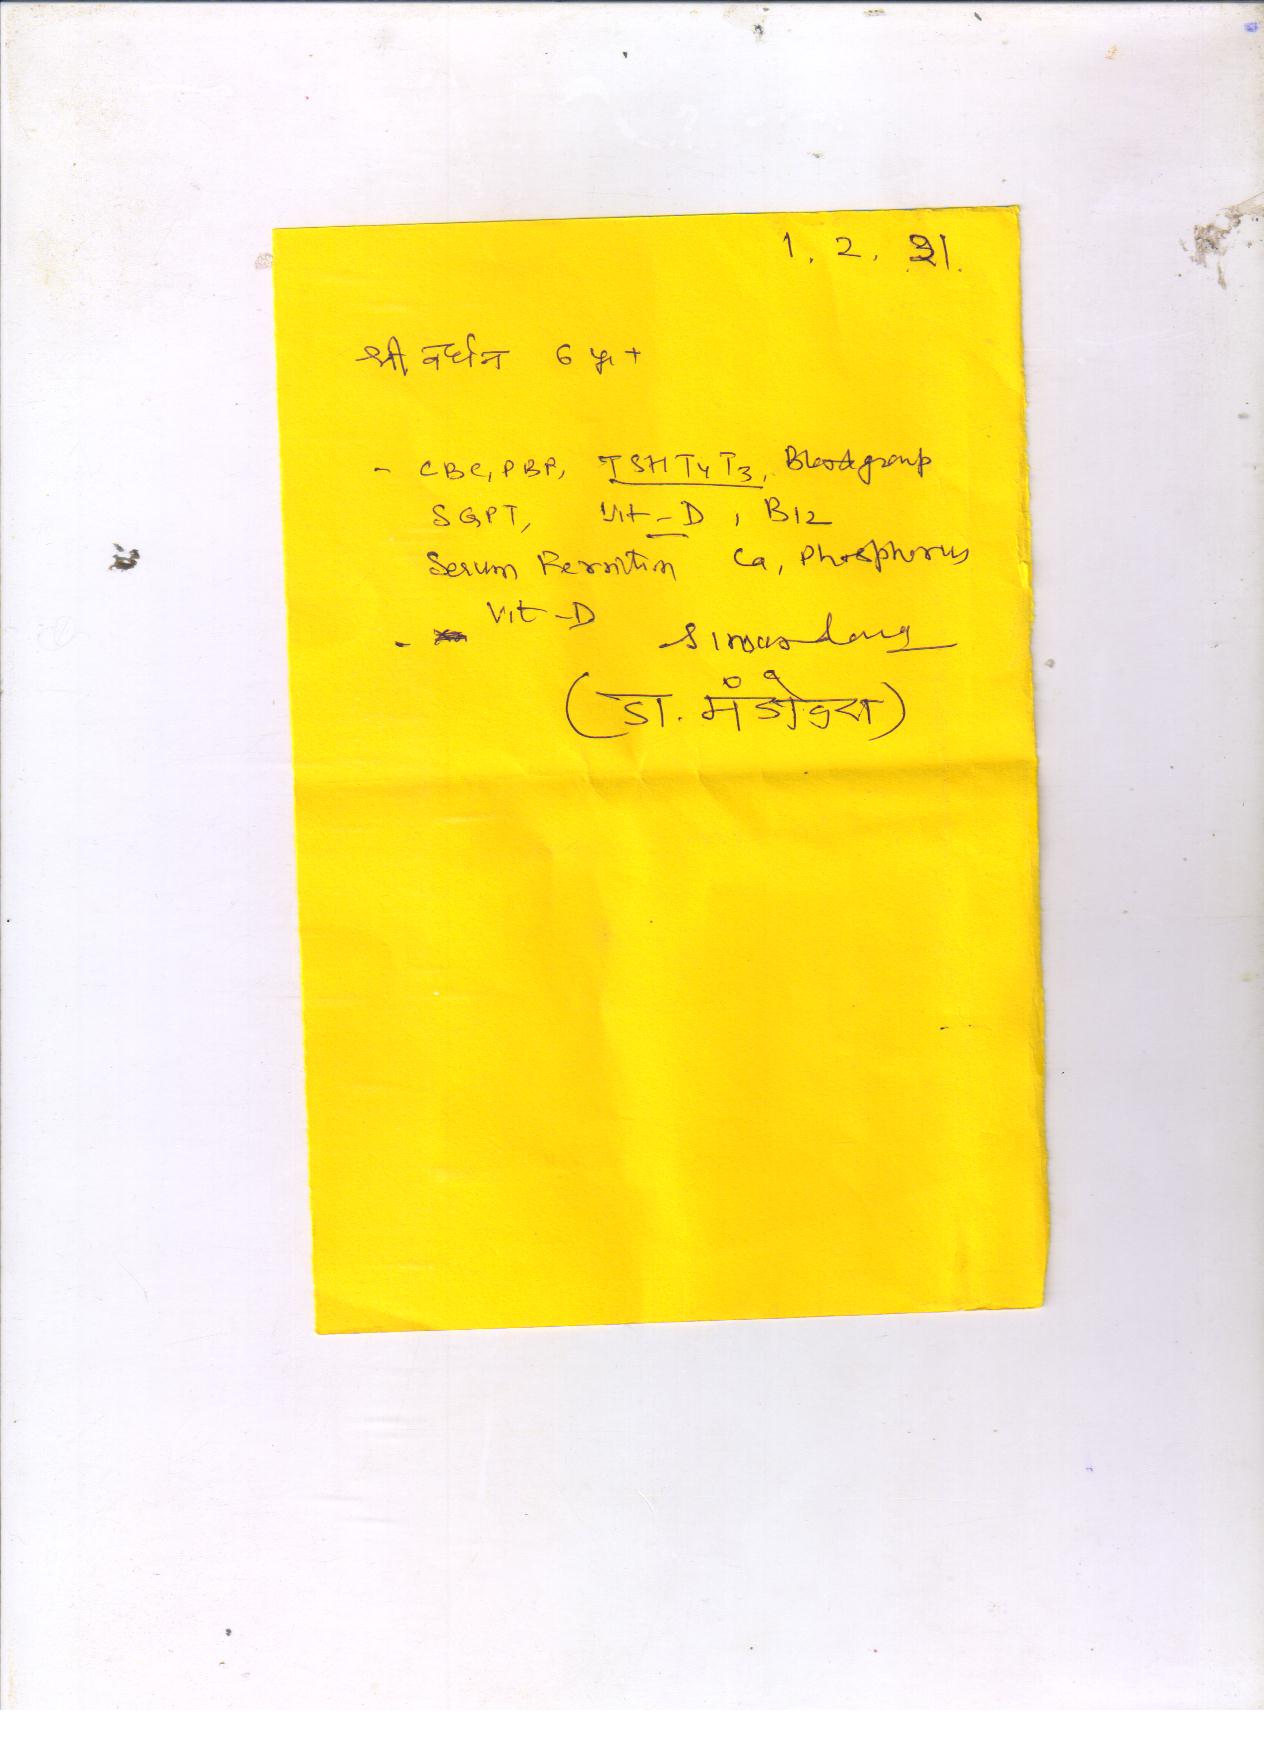 1. 2. 21.
श्री वर्धन 6 yr +
- CBC, PBF, TSH T4 T3, Blood group
SGPT, Vit-D, B12
Serum Ca, Phosphorus
Vit-D
-
(डा.